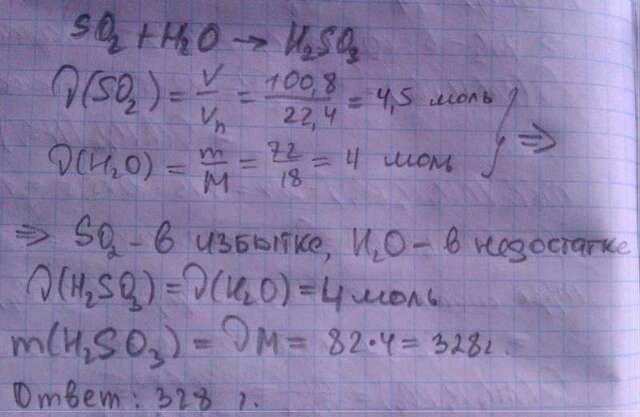 SO₂ + H₂O → H₂SO₃
ν(SO₂) = V/Vₙ = 100,8/22,4 = 4,5 моль
ν(H₂O) = m/M = 72/18 = 4 моль } ⇒
⇒ SO₂ - в избытке, H₂O - в недостатке
ν(H₂SO₃) = ν(H₂O) = 4 моль
m(H₂SO₃) = νM = 82·4 = 328г.
Ответ: 328 г.